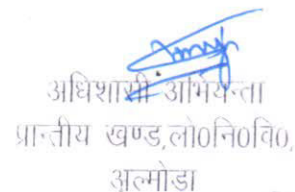 अधिशासी अभियन्ता
प्रान्तीय खण्ड,लो०नि०वि०,
अल्मोडा